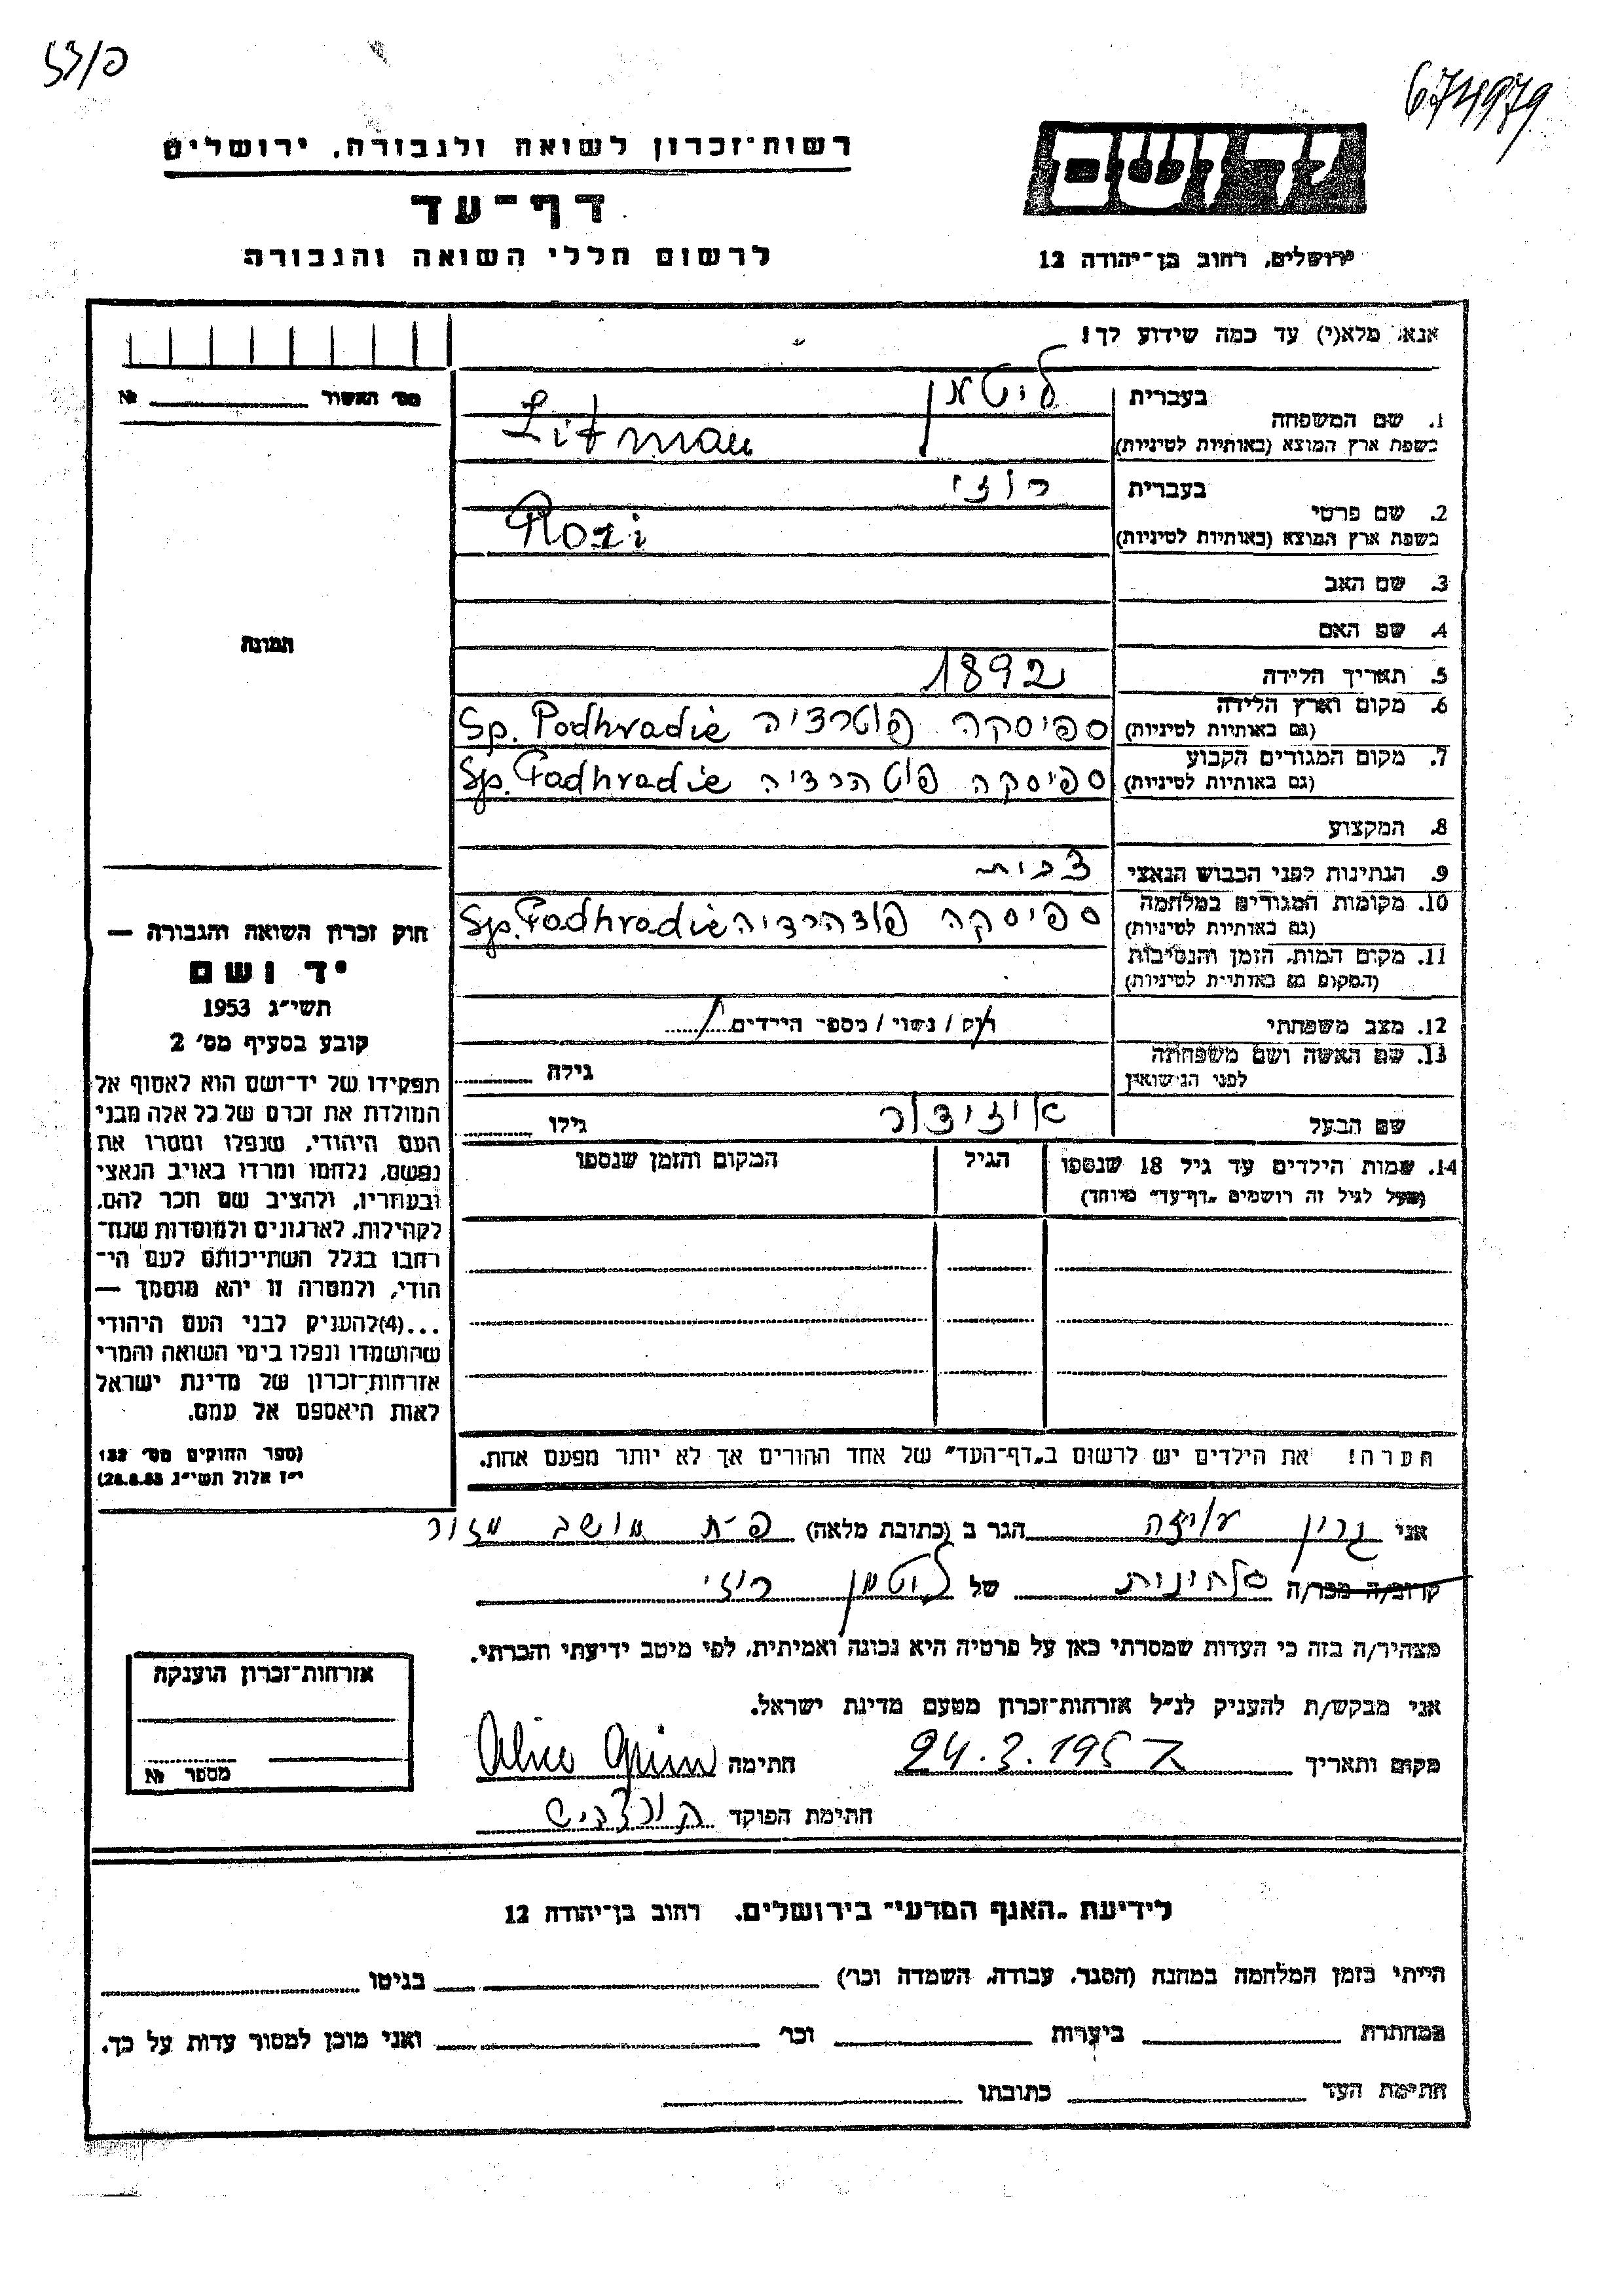 674979
רשות־זכרון לשואה ולגבורה, ירושלים
דף־עד
לרשום חללי השואה והגבורה
יד ושם
ירושלים, רחוב בן־יהודה 12
אנא, מלא(י) עד כמה שידוע לך!
מס׳ האשור № 
1. שם המשפחה
בעברית
ליטמן
בשפת ארץ המוצא (באותיות לטיניות)
Litman
2. שם פרטי
בעברית
רוזי
בשפת ארץ המוצא (באותיות לטיניות)
Rozi
3. שם האב
4. שם האם
תמונה
5. תאריך הלידה 1892
6. מקום וארץ הלידה
(גם באותיות לטיניות)
ספיסקה פוטרדיה Sp. Podhradie
7. מקום המגורים הקבוע
(גם באותיות לטיניות)
ספיסקה פוטהרדיה Sp. Padhradie
8. המקצוע
9. הנתינות לפני הכבוש הנאצי
10. מקומות המגורים במלחמה
(גם באותיות לטיניות)
ספיסקה פודהרדיה Sp. Padhradie
11. מקום המות, הזמן והנסיבות
(המקום גם באותיות לטיניות)
12. מצב משפחתי
רוק / נשוי / מספר הילדים
13. שם האשה ושם משפחתה
לפני הנישואין
גילה
שם הבעל איזידור
גילו
14. שמות הילדים עד גיל 18 שנספו
(מעל לגיל זה רושמים „דף־עד” מיוחד)
הגיל
המקום והזמן שנספו
הערה! את הילדים יש לרשום ב„דף־העד” של אחד ההורים אך לא יותר מפעם אחת.
חוק זכרון השואה והגבורה —
יד ושם
תשי״ג 1953
קובע בסעיף מס׳ 2
תפקידו של יד־ושם הוא לאסוף אל
המולדת את זכרם של כל אלה מבני
העם היהודי, שנפלו ומסרו את
נפשם, נלחמו ומרדו באויב הנאצי
ובעוזריו, ולהציב שם וזכר להם,
לקהילות, לארגונים ולמוסדות שנח־
רבו בגלל השתייכותם לעם הי־
הודי, ולמטרה זו יהא מוסמך —
...(4) להעניק לבני העם היהודי
שהושמדו ונפלו בימי השואה והמרי
אזרחות־זכרון של מדינת ישראל
לאות היאספם אל עמם.
(ספר החוקים מס׳ 132
י״ז אלול תשי״ג 28.8.53)
אני גרין עליזה הגר ב (כתובת מלאה) פ״ת מושב מזור
קרוב/ה מכר/ה של ליטמן רוזי
מצהיר/ה בזה כי העדות שמסרתי כאן על פרטיה היא נכונה ואמיתית, לפי מיטב ידיעתי והכרתי.
אני מבקש/ת להעניק לנ״ל אזרחות־זכרון מטעם מדינת ישראל.
מקום ותאריך חתימה Alice Grün
חתימת הפוקד
אזרחות־זכרון הוענקה
מספר №
לידיעת „האגף המדעי” בירושלים, רחוב בן־יהודה 12
הייתי בזמן המלחמה במחנה (הסגר, עבודה, השמדה וכו׳) בגיטו
במחתרת ביערות וכו׳ ואני מוכן למסור עדות על כך.
חתימת העד כתובתו